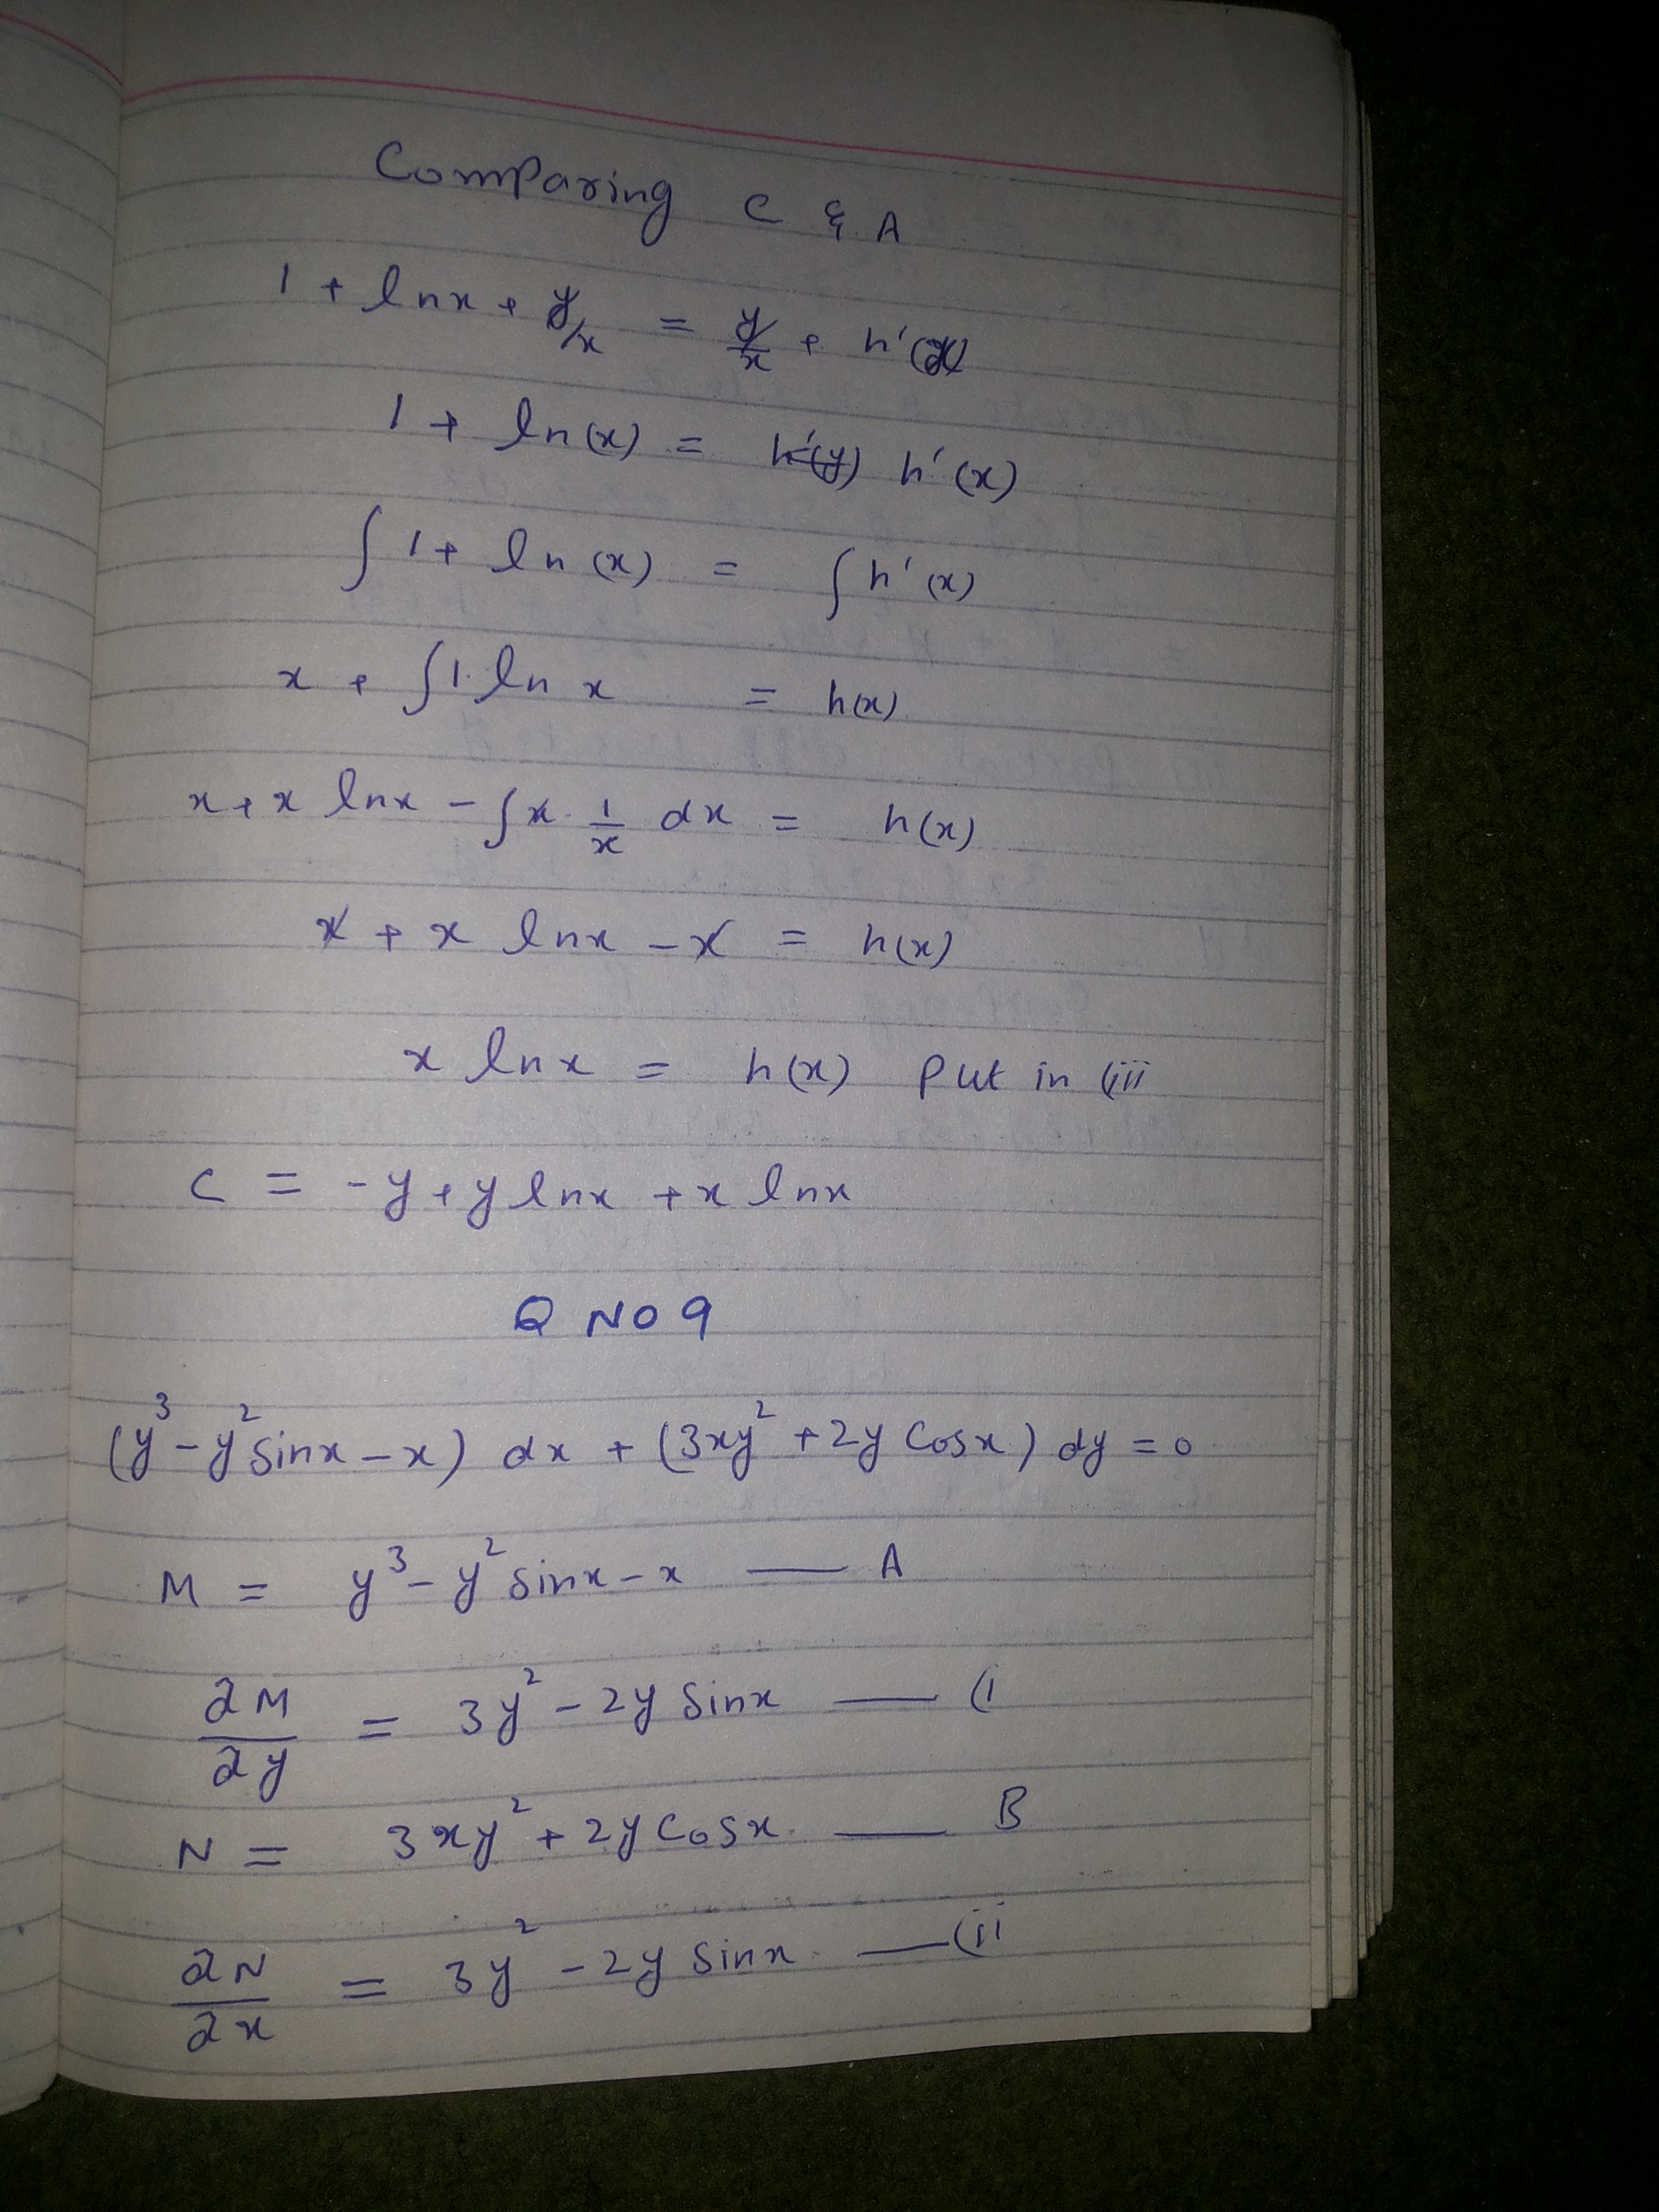 Comparing C & A
1 + lnx + y/x = y/x + h'(x)
1 + ln(x) = h'(y) h'(x)
∫ 1 + ln(x) = ∫ h'(x)
x + ∫1. ln x = h(x)
x + x lnx - ∫x. 1/x dx = h(x)
x + x lnx - x = h(x)
x lnx = h(x) Put in (iii
C = -y + y lnx + x lnx
Q NO 9
(y³ - y² sinx - x) dx + (3xy² + 2y Cosx) dy = 0
M = y³ - y² sinx - x — A
∂M/∂y = 3y² - 2y Sinx — (i
N = 3xy² + 2y Cosx — B
∂N/∂x = 3y² - 2y Sinx — (ii